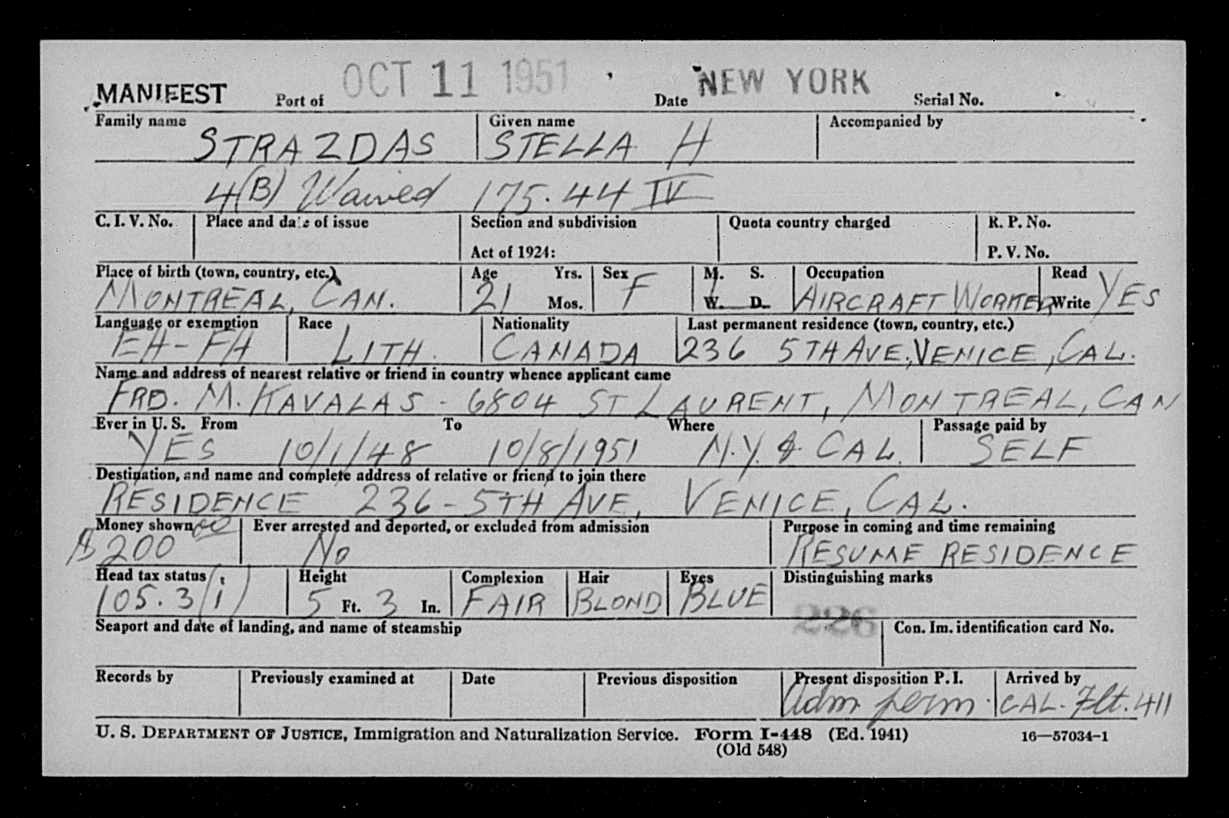 MANIFEST Port of OCT 11 1951 Date NEW YORK Serial No.
Family name STRAZDAS Given name STELLA H Accompanied by
4(B) Waived 175.44 IV
C. I. V. No. Place and date of issue Section and subdivision Quota country charged R. P. No.
Act of 1924: P. V. No.
Place of birth (town, country, etc.) Age Yrs. Sex M. S. Occupation Read
MONTREAL, CAN. 21 Mos. F W. D. AIRCRAFT WORKER Write YES
Language or exemption Race Nationality Last permanent residence (town, country, etc.)
EH-FH LITH. CANADA 236 5TH AVE, VENICE, CAL.
Name and address of nearest relative or friend in country whence applicant came
FRD. M. KAVALAS - 6804 ST LAURENT, MONTREAL, CAN
Ever in U. S. From To Where Passage paid by
YES 10/1/48 10/8/1951 N.Y. & CAL. SELF
Destination, and name and complete address of relative or friend to join there
RESIDENCE 236-5TH AVE, VENICE, CAL.
Money shown Ever arrested and deported, or excluded from admission Purpose in coming and time remaining
$200 00 No RESUME RESIDENCE
Head tax status Height Complexion Hair Eyes Distinguishing marks
105.3(1) 5 Ft. 3 In. FAIR BLOND BLUE
226
Seaport and date of landing, and name of steamship Con. Im. identification card No.
Records by Previously examined at Date Previous disposition Present disposition P. I. Arrived by
Adm perm. CAL. Flt. 411
U. S. DEPARTMENT OF JUSTICE, Immigration and Naturalization Service. Form I-448 (Ed. 1941) 16—57034-1
(Old 548)